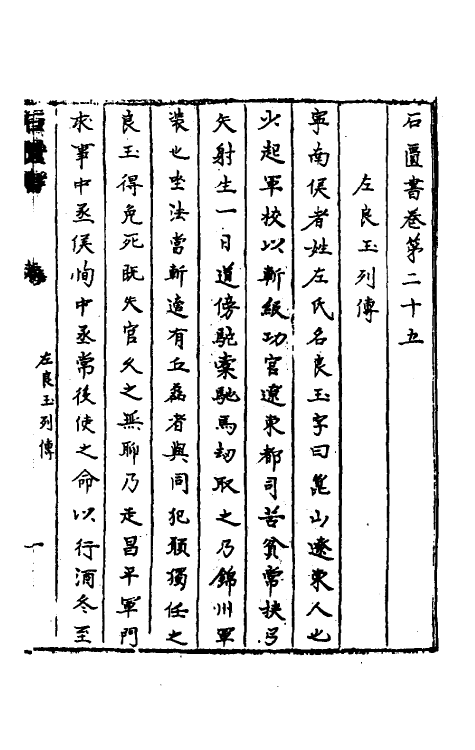 石匱書卷第二十五
左良玉列傳
寧南侯者姓左氏名良玉字曰崑山遼東人也
少起軍校以斬級功官遼東都司苦貧常挾弓
矢射生一日道傍駝橐馳馬刼取之乃錦州軍
裝也坐法當斬適有丘磊者與同犯願獨任之
良玉得免死既失官久之無聊乃走昌平軍門
求事中丞侯恂中丞常役使之命以行酒冬至
石匱書
卷
左良玉列傳
一